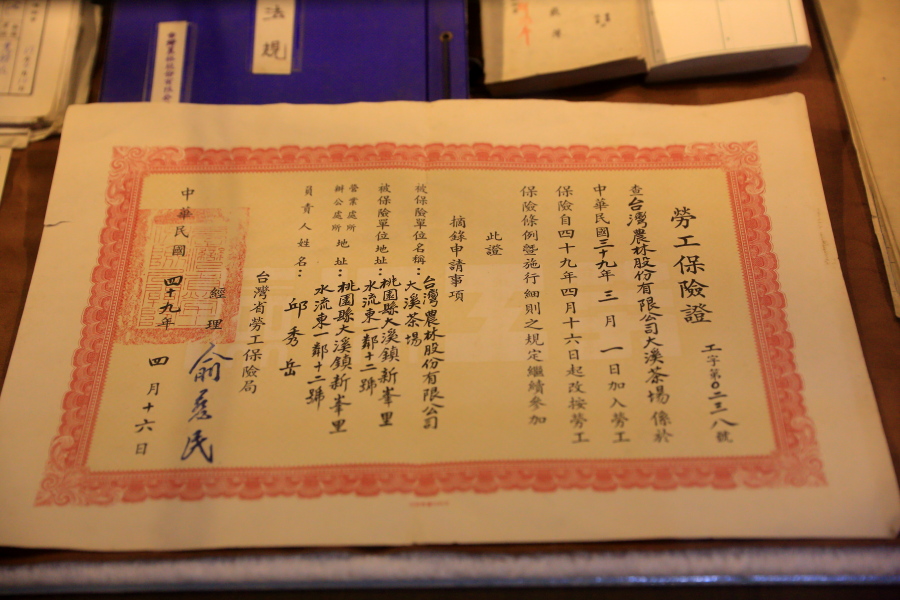 勞工保險證
工字第0二三八號
查台灣農林股份有限公司大溪茶場係於
中華民國三十九年三月一日加入勞工
保險自四十九年四月十六日起改按勞工
保險條例暨施行細則之規定繼續參加
此證
摘錄申請事項
被保險單位名稱：台灣農林股份有限公司
大溪茶場
被保險單位地址：桃園縣大溪鎮新峯里
水流東一鄰十二號
營業處所
辦公處所地址：桃園縣大溪鎮新峯里
水流東一鄰十二號
負責人姓名：邱秀岳
台灣省勞工保險局
經理
中華民國四十九年四月十六日
法規